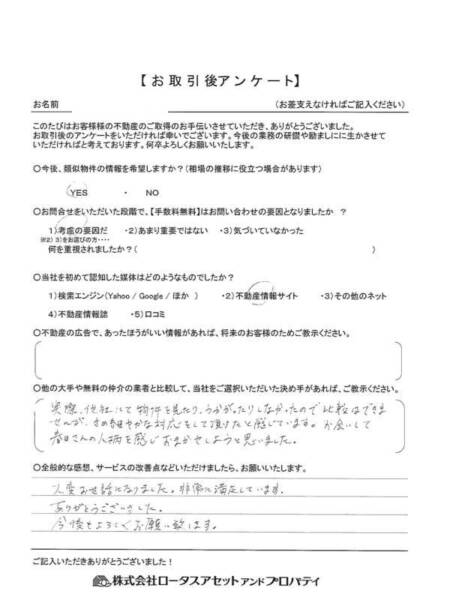 【お取引後アンケート】
お名前 (お差支えなければご記入ください)
このたびはお客様様の不動産のご取得のお手伝いさせていただき、ありがとうございました。
お取引後のアンケートをいただければ幸いでございます。今後の業務の研鑽や励ましにに生かさせて
いただければと考えております。何卒よろしくお願いいたします。
○今後、類似物件の情報を希望しますか？(相場の推移に役立つ場合があります)
YES ・ NO
○お問合せをいただいた段階で、【手数料無料】はお問い合わせの要因となりましたか ？
1)考慮の要因だ ・2)あまり重要ではない ・3)気づいていなかった
※2) 3)をお選びの方・・・・
何を重視されましたか？( )
○当社を初めて認知した媒体はどのようなものでしたか？
1)検索エンジン(Yahoo / Google / ほか ) ・2)不動産情報サイト ・3)その他のネット
4)不動産情報誌 ・5)口コミ
○不動産の広告で、あったほうがいい情報があれば、将来のお客様のためご教示ください。
○他の大手や無料の仲介の業者と比較して、当社をご選択いただいた決め手があれば、ご教示ください。
実際、他社にて物件を見たり、うかがったりしなかったので比較はできま
せんが、きめ細やかな対応をして頂けたと感じています。お会いして
春日さんの人柄を感じおまかせしようと思いました。
○全般的な感想、サービスの改善点などいただけましたら、お願いします。
大変お世話になりました。非常に満足しています。
ありがとうございました。
今後もよろしくお願い致します。
ご記入いただきありがとうございました！
株式会社ロータスアセットアンドプロパティ